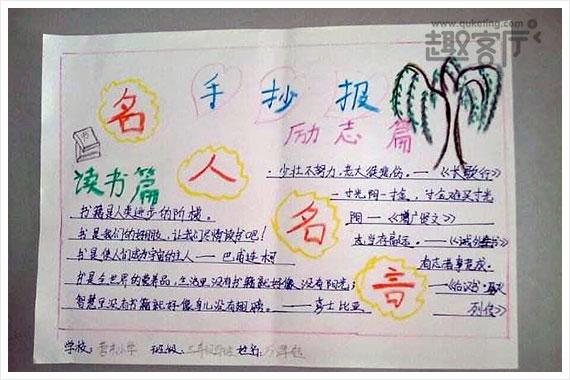 www.quketing.com
趣客厅
手抄报
名人名言
励志篇
读书篇
·少壮不努力,老大徒悲伤。——《长歌行》
一寸光阴一寸金,寸金难买寸光
阴——《增广贤文》
志当存高远。——《诫外甥书》
有志者事竟成。
——《后汉书·
列传》
书籍是人类进步的阶梯。
书是我们的
让我们
读书吧!
书是使人们成为宇宙的主人——巴甫连柯
书是全世界的营养品,生活里没有书籍就好像没有阳光;
智慧里没有书籍就好像鸟儿没有翅膀。——莎士比亚
学校:
小学 班级:
姓名: